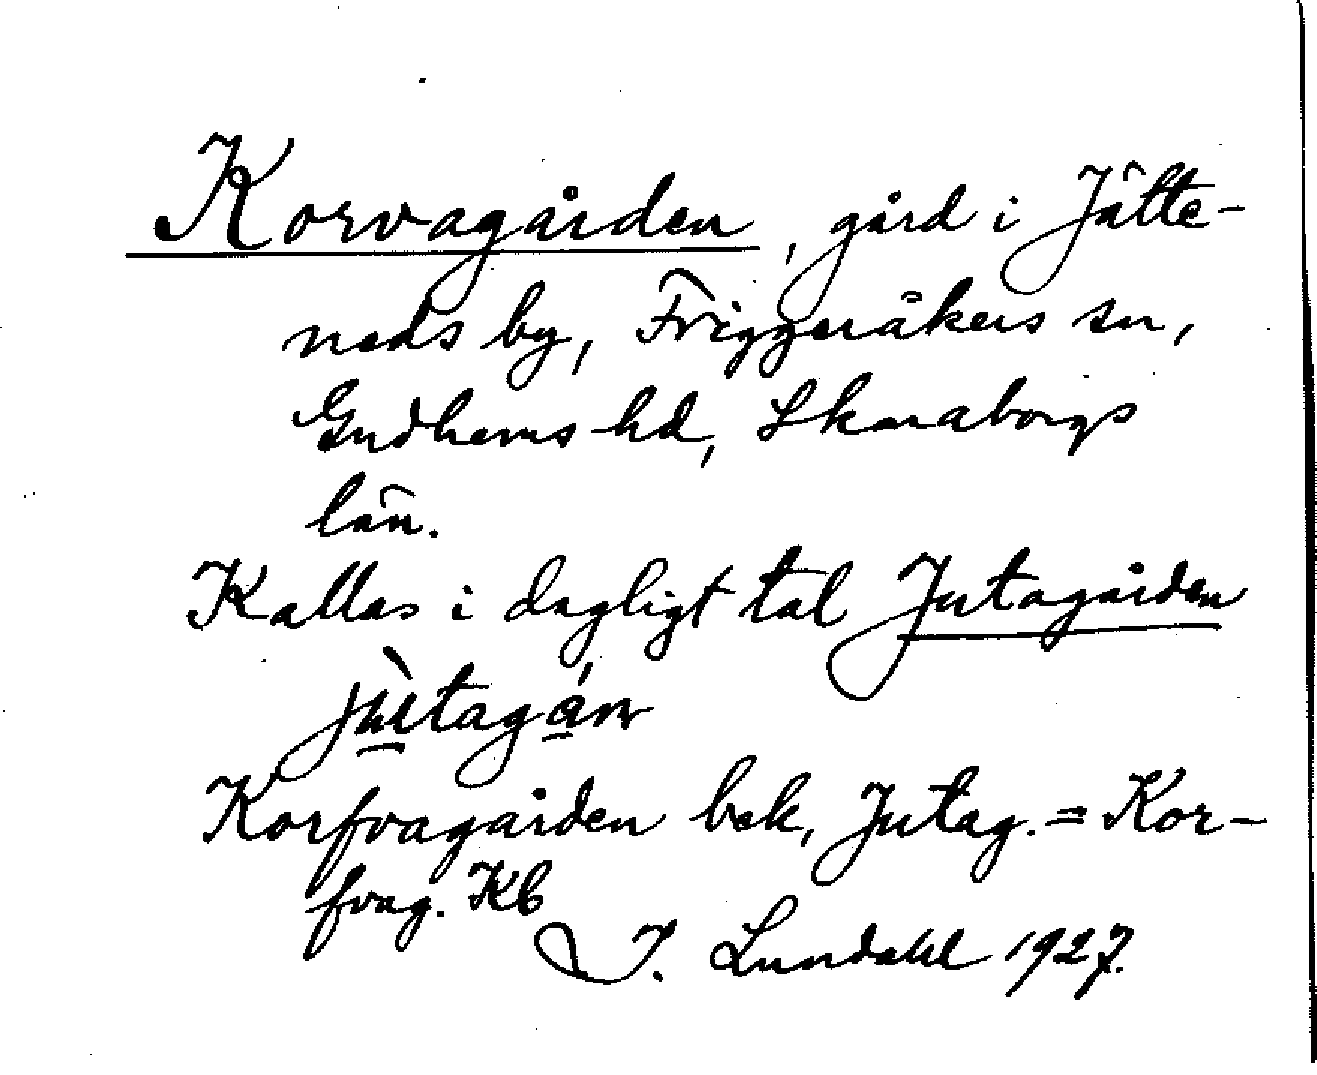 Korvagården, gård i Jätte-
neds by, Friggeråkers sn,
Gudhems hd, Skaraborgs
län.
Kallas i dagligt tal Jutagården
jùtagán
Korfvagården bek, Jutag. = Kor-
fvag. Kb
I. Lundahl 1927.